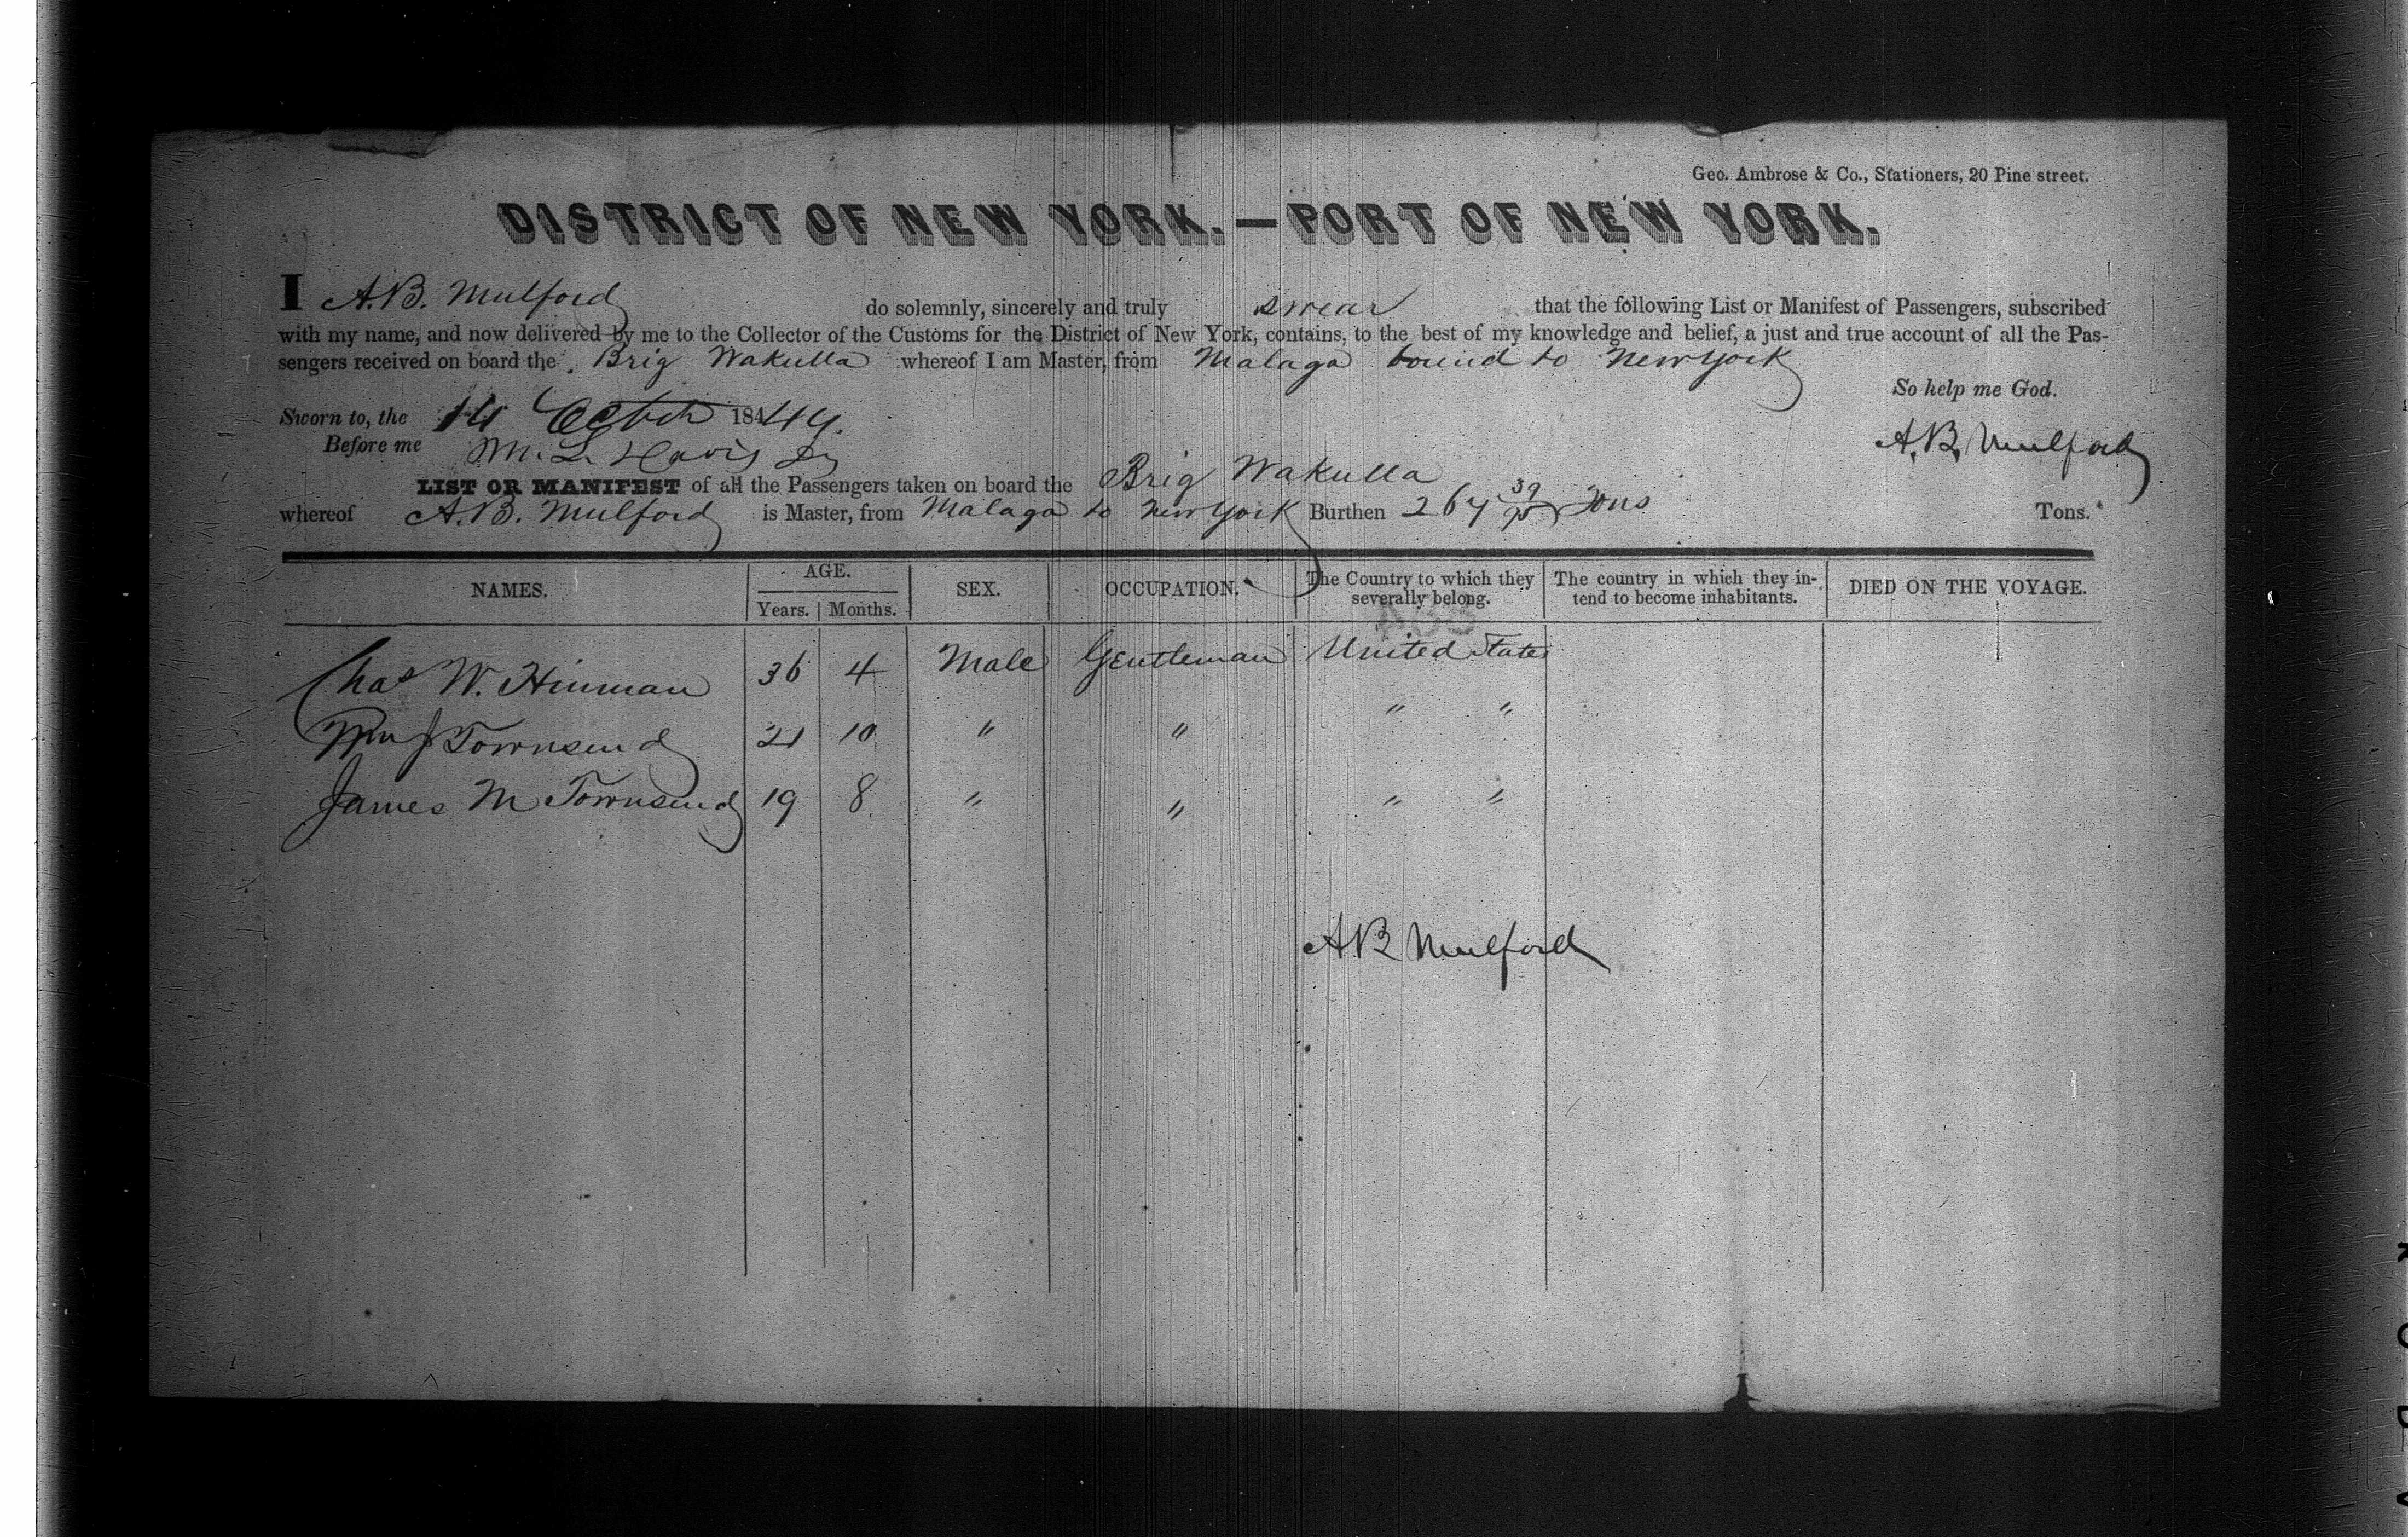 Geo. Ambrose & Co., Stationers, 20 Pine street.
DISTRICT OF NEW YORK.—PORT OF NEW YORK.
I A.B. Mulford do solemnly, sincerely and truly swear that the following List or Manifest of Passengers, subscribed
with my name, and now delivered by me to the Collector of the Customs for the District of New York, contains, to the best of my knowledge and belief, a just and true account of all the Pas-
sengers received on board the Brig Wakulla whereof I am Master, from Malaga bound to New York
So help me God.
Sworn to, the 14 184
Before me M. L. Davis
A.B. Mulford
LIST OR MANIFEST of all the Passengers taken on board the Brig Wakulla
whereof A.B. Mulford is Master, from Malaga to New York Burthen 267 39/95 Tons Tons.
NAMES. AGE. SEX. OCCUPATION. The Country to which they severally belong. The country in which they in-tend to become inhabitants. DIED ON THE VOYAGE.
Years. Months.
Chas W. Hinman 36 4 Male Gentleman United States
Wm J Townsend 21 10 " " " "
James M Townsend 19 8 " " " "
A B Mulford